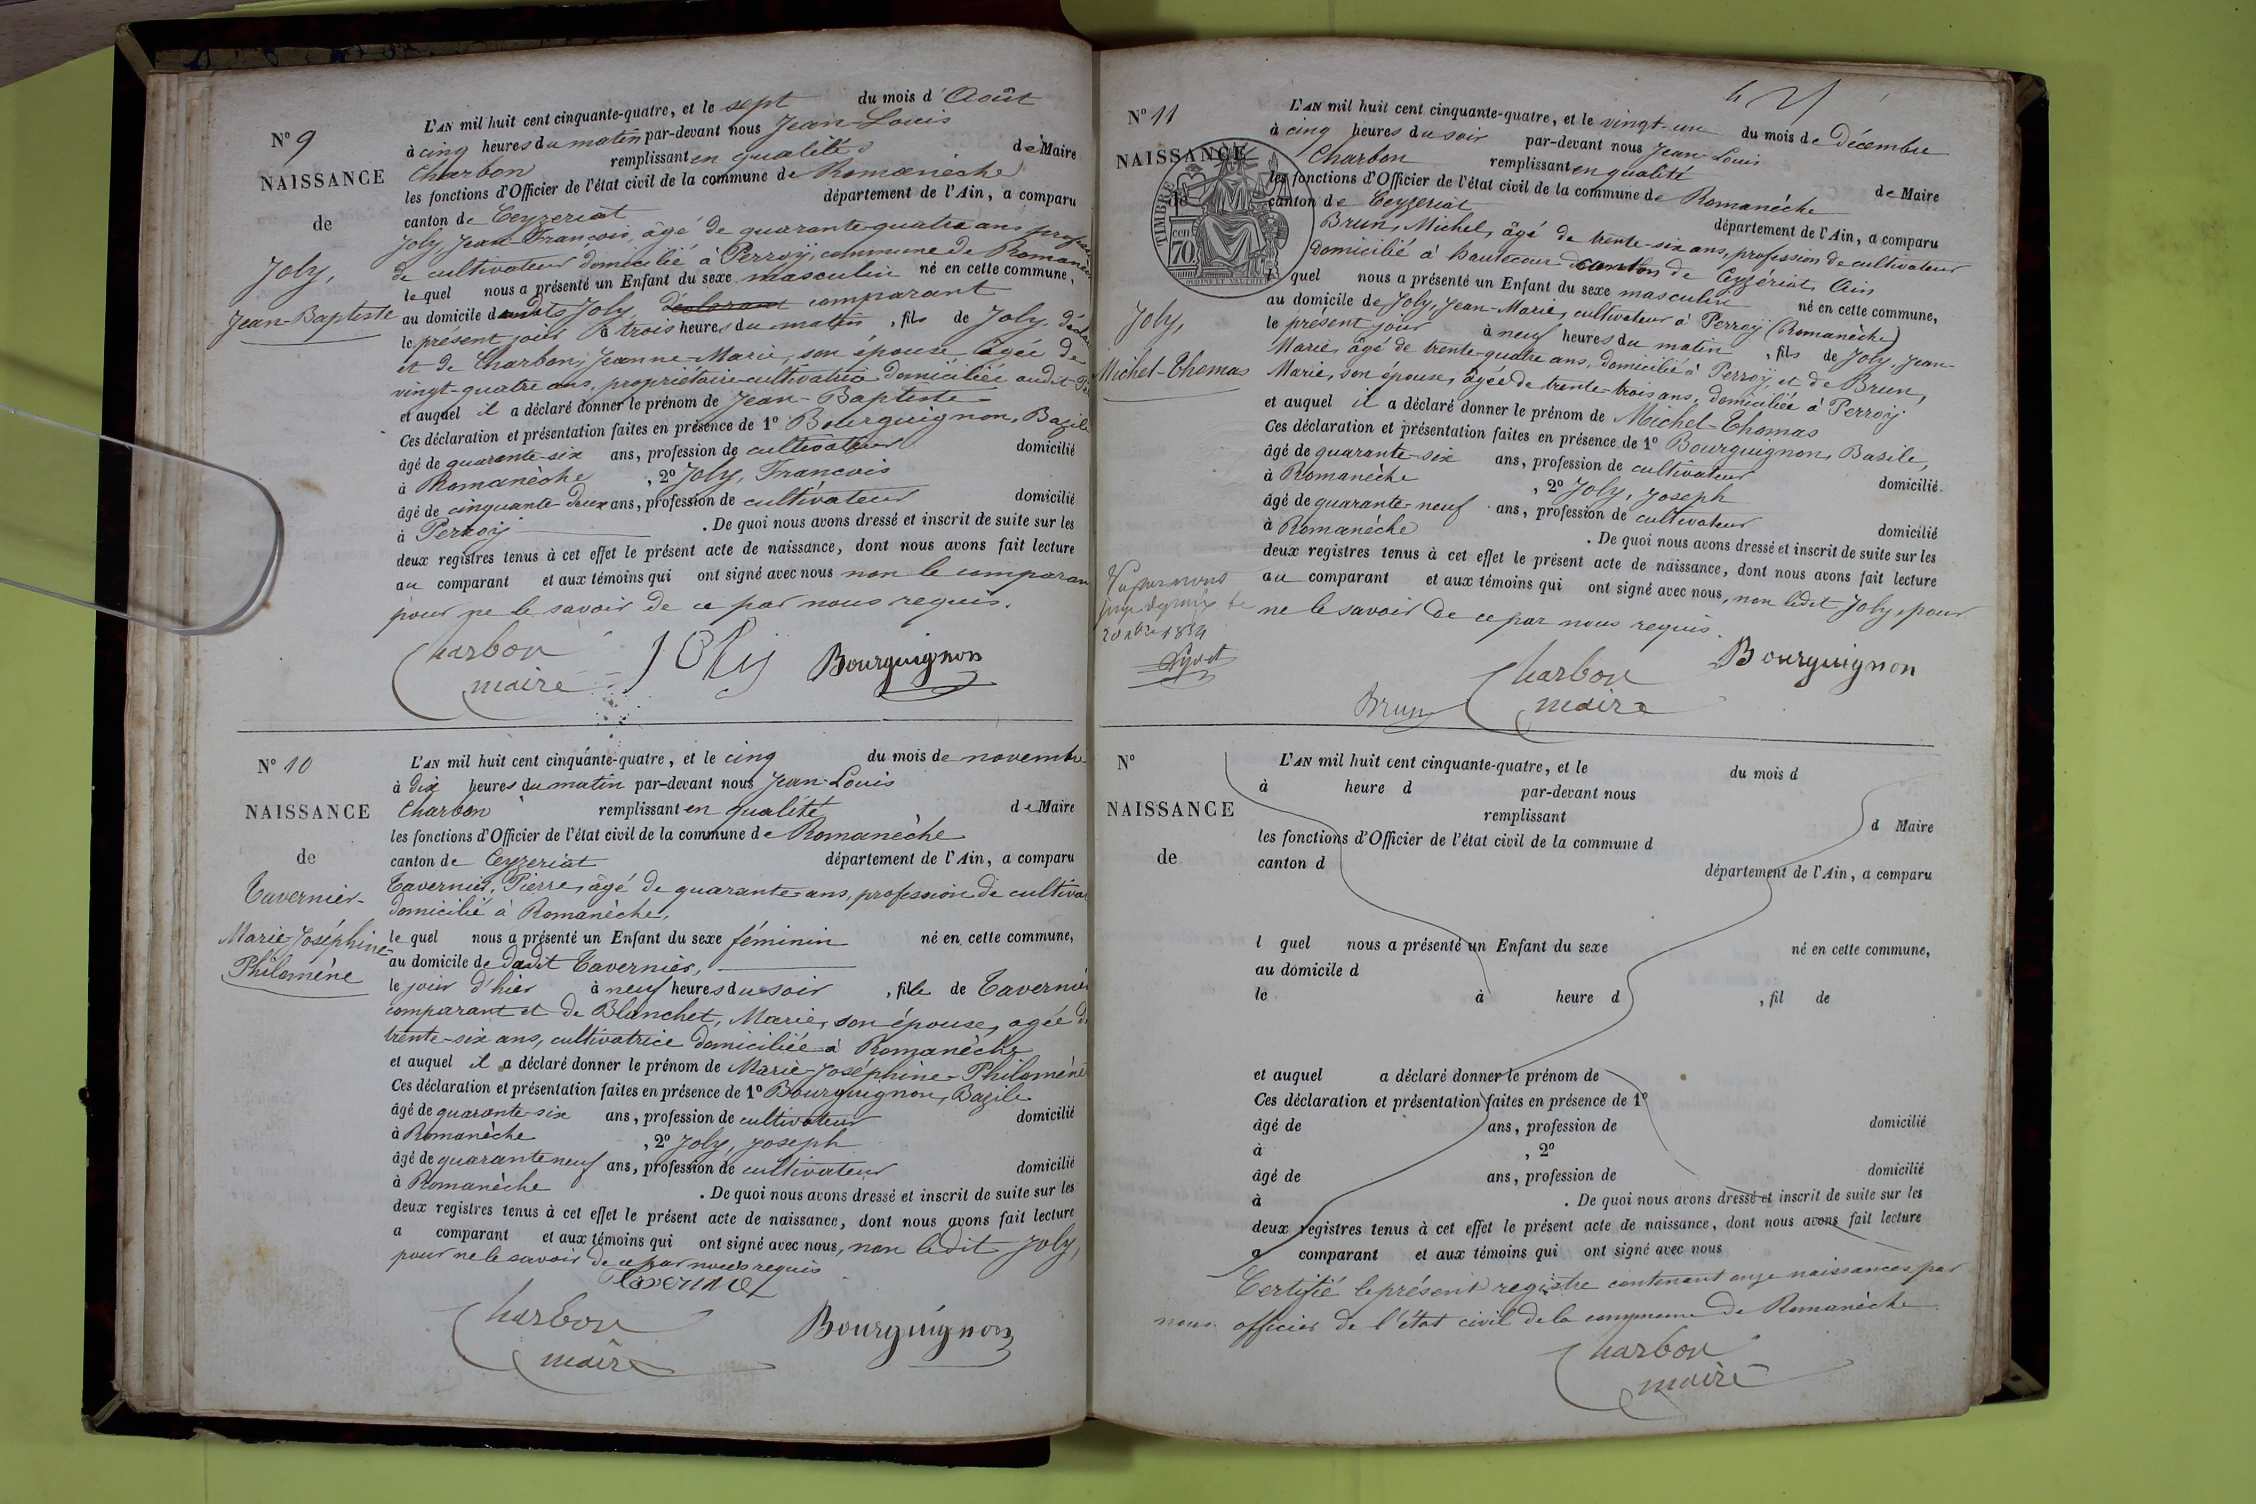 N° 9
NAISSANCE
de
Joly,
Jean-Baptiste
L'AN mil huit cent cinquante-quatre, et le sept du mois d'Août
à cinq heures du matin par-devant nous Jean-Louis
Charbon remplissant en qualité de Maire
les fonctions d'Officier de l'état civil de la commune de Romanèche
canton de Ceyzeriat département de l'Ain, a comparu
Joly Jean-François, âgé de quarante-quatre ans
de cultivateur domicilié à Perroÿ, commune de
lequel nous a présenté un Enfant du sexe masculin né en cette commune,
au domicile dudit Joly, comparant
le présent jour à trois heures du matin, fils de Joly,
et de Charbon, Jeanne-Marie, son épouse, âgée de
vingt-quatre ans, propriétaire-cultivatrice domiciliée audit
et auquel il a déclaré donner le prénom de Jean-Baptiste
Ces déclaration et présentation faites en présence de 1° Bourguignon, Bazile
âgé de quarante-six ans, profession de cultivateur domicilié
à Romanèche, 2° Joly, François
âgé de cinquante-deux ans, profession de cultivateur domicilié
à Perroÿ. De quoi nous avons dressé et inscrit de suite sur les
deux registres tenus à cet effet le présent acte de naissance, dont nous avons fait lecture
au comparant et aux témoins qui ont signé avec nous non le comparan
pour ne le savoir de ce par nous requis.
Charbon
maire
Joly
Bourguignon
N° 10
NAISSANCE
de
Tavernier-
Marie-Joséphine-
Philomène
L'AN mil huit cent cinquante-quatre, et le cinq du mois de novembre
à dix heures du matin par-devant nous Jean-Louis
Charbon remplissant en qualité de Maire
les fonctions d'Officier de l'état civil de la commune de Romanèche
canton de Ceyzeriat département de l'Ain, a comparu
Tavernier, Pierre, âgé de quarante ans, profession de cultiva
domicilié à Romanèche,
lequel nous a présenté un Enfant du sexe féminin né en cette commune,
au domicile de dudit Tavernier,
le jour d'hier à neuf heures du soir, fille de Tavernier
comparant et de Blanchet, Marie, son épouse, agée de
trente-six ans, cultivatrice domiciliée à Romanèche
et auquel il a déclaré donner le prénom de Marie-Joséphine-Philomène
Ces déclaration et présentation faites en présence de 1° Bourguignon, Bazile
âgé de quarante-six ans, profession de cultivateur domicilié
à Romanèche, 2° Joly, Joseph
âgé de quarante neuf ans, profession de cultivateur domicilié
à Romanèche. De quoi nous avons dressé et inscrit de suite sur les
deux registres tenus à cet effet le présent acte de naissance, dont nous avons fait lecture
a comparant et aux témoins qui ont signé avec nous, non ledit Joly,
pour ne le savoir de ce par nous requis
Tavernier
Charbon
maire
Bourguignon
N° 11
NAISSANCE
TIMBRE
70 cen
Joly,
Michel-Thomas
L'AN mil huit cent cinquante-quatre, et le vingt-un du mois de Décembre
à cinq heures du soir par-devant nous Jean-Louis
Charbon remplissant en qualité de Maire
les fonctions d'Officier de l'état civil de la commune de Romanèche
canton de Ceyzeriat département de l'Ain, a comparu
Brun, Michel, âgé de trente-six ans, profession de cultivateur
Domicilié à hautecour canton de Ceyzériat, Ain
quel nous a présenté un Enfant du sexe masculin né en cette commune,
au domicile de Joly, Jean-Marie, cultivateur à Perroÿ (Romanèche)
le présent jour à neuf heures du matin, fils de Joly, Jean-
Marie, âgé de trente-quatre ans, domicilié à Perroÿ, et de Brun,
Marie, son épouse, âgée de trente-trois ans, domiciliée à Perroÿ
et auquel il a déclaré donner le prénom de Michel-Thomas
Ces déclaration et présentation faites en présence de 1° Bourguignon, Basile,
âgé de quarante-six ans, profession de cultivateur domicilié
à Romanèche, 2° Joly, Joseph
âgé de quarante-neuf ans, profession de cultivateur domicilié
à Romanèche. De quoi nous avons dressé et inscrit de suite sur les
deux registres tenus à cet effet le présent acte de naissance, dont nous avons fait lecture
au comparant et aux témoins qui ont signé avec nous, non ledit Joly, pour
ne le savoir de ce par nous requis.
Vu par nous
Brun
Charbon
maire
Bourguignon
N°
NAISSANCE
de
L'AN mil huit cent cinquante-quatre, et le du mois d
à heure d par-devant nous
remplissant d Maire
les fonctions d'Officier de l'état civil de la commune d
canton d département de l'Ain, a comparu
l quel nous a présenté un Enfant du sexe né en cette commune,
au domicile d
le à heure d , fil de
et auquel a déclaré donner le prénom de
Ces déclaration et présentation faites en présence de 1°
âgé de ans, profession de domicilié
à , 2°
âgé de ans, profession de domicilié
à . De quoi nous avons dressé et inscrit de suite sur les
deux registres tenus à cet effet le présent acte de naissance, dont nous avons fait lecture
a comparant et aux témoins qui ont signé avec nous
Certifié le présent registre contenant onze naissances par
nous officier de l'état civil de la commune de Romanèche
Charbon
maire